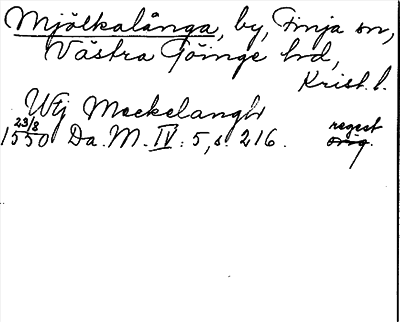 Mjölkalånga, by, Finja sn,
Västra Göinge hd,
Krist. l.
Wij Meckelanghr
23/8 regest
1550 Da. M. IV: 5, s. 216. orig.